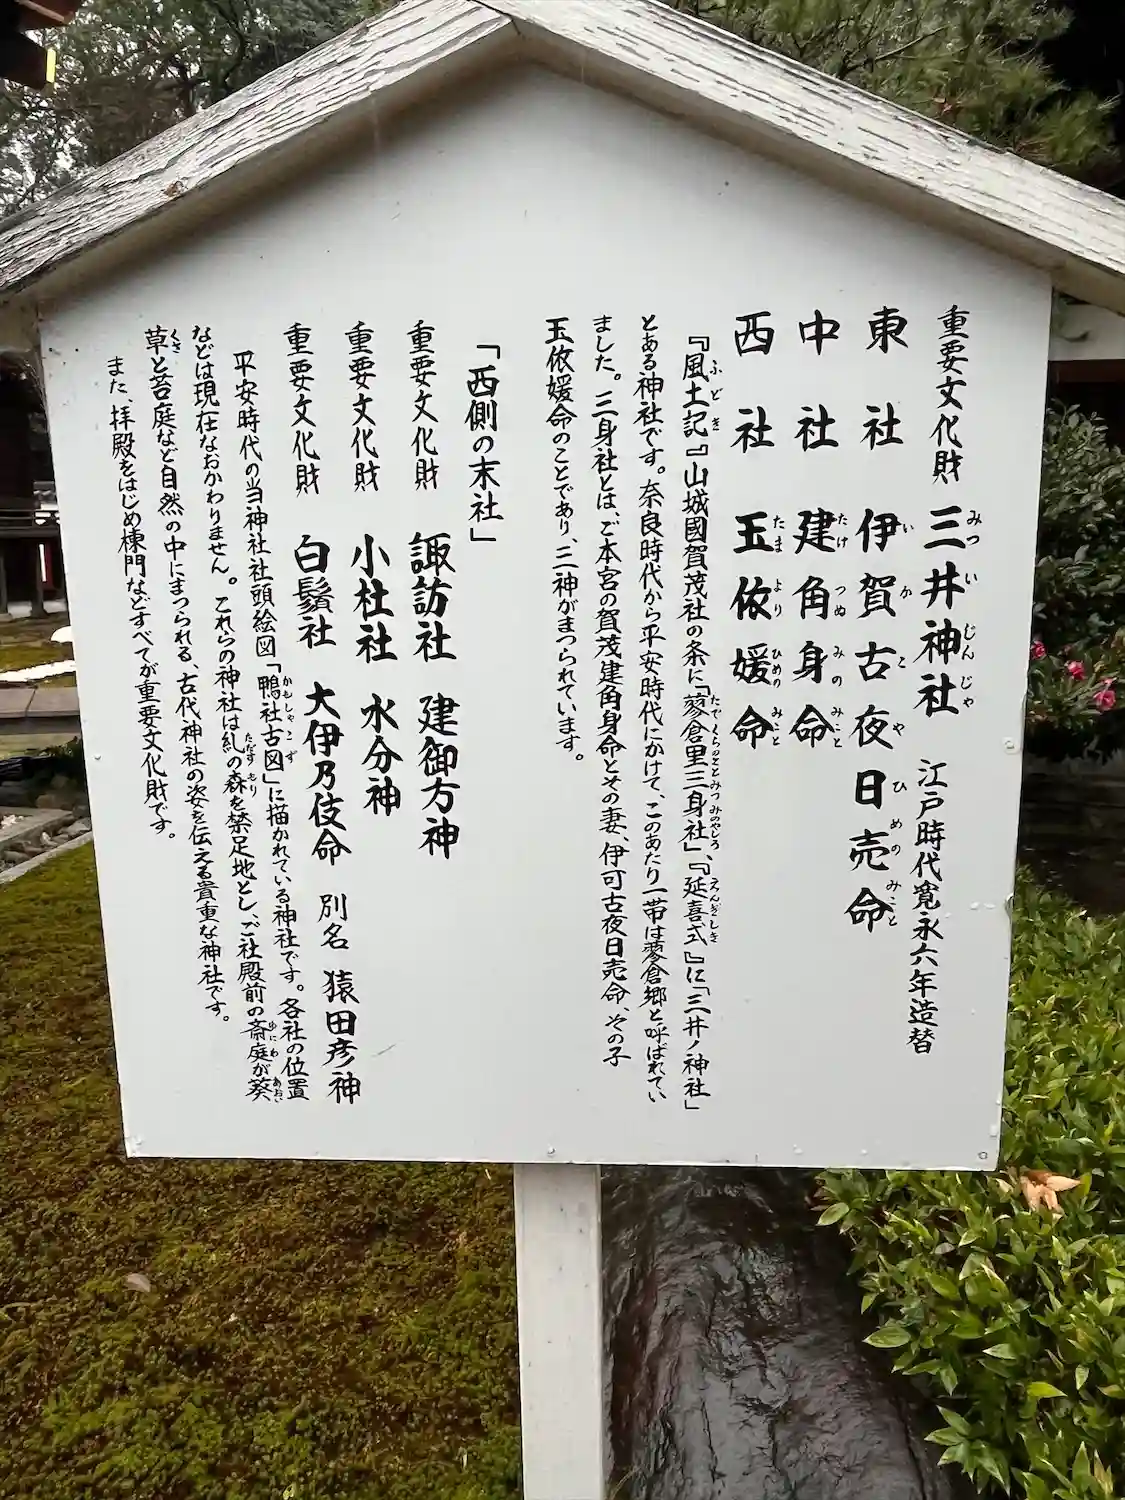 重要文化財 三井神社 江戸時代寛永六年造替
みつ い じん じゃ
東社 伊賀古夜日売命
い か こ や ひ めの みこと
中社 建角身命
たけ つぬ みの みこと
西社 玉依媛命
たま より ひめの みこと
『風土記』『山城國賀茂社の条に「蓼倉里三身社」、『延喜式』に「三井ノ神社」
ふ ど き たでくらのさとみつみのやしろ えんぎしき
とある神社です。奈良時代から平安時代にかけて、このあたり一帯は蓼倉郷と呼ばれてい
ました。三身社とは、ご本宮の賀茂建角身命とその妻、伊可古夜日売命、その子
玉依媛命のことであり、三神がまつられています。
「西側の末社」
重要文化財 諏訪社 建御方神
重要文化財 小杜社 水分神
重要文化財 白鬚社 大伊乃伎命 別名 猿田彦神
平安時代の当神社社頭絵図「鴨社古図」に描かれている神社です。各社の位置
かもしゃこず
などは現在なおかわりません。これらの神社は糺の森を禁足地とし、ご社殿前の斎庭が葵
ただす もり ゆにわ あおい
草と苔庭など自然の中にまつられる、古代神社の姿を伝える貴重な神社です。
くさ
また、拝殿をはじめ棟門などすべてが重要文化財です。